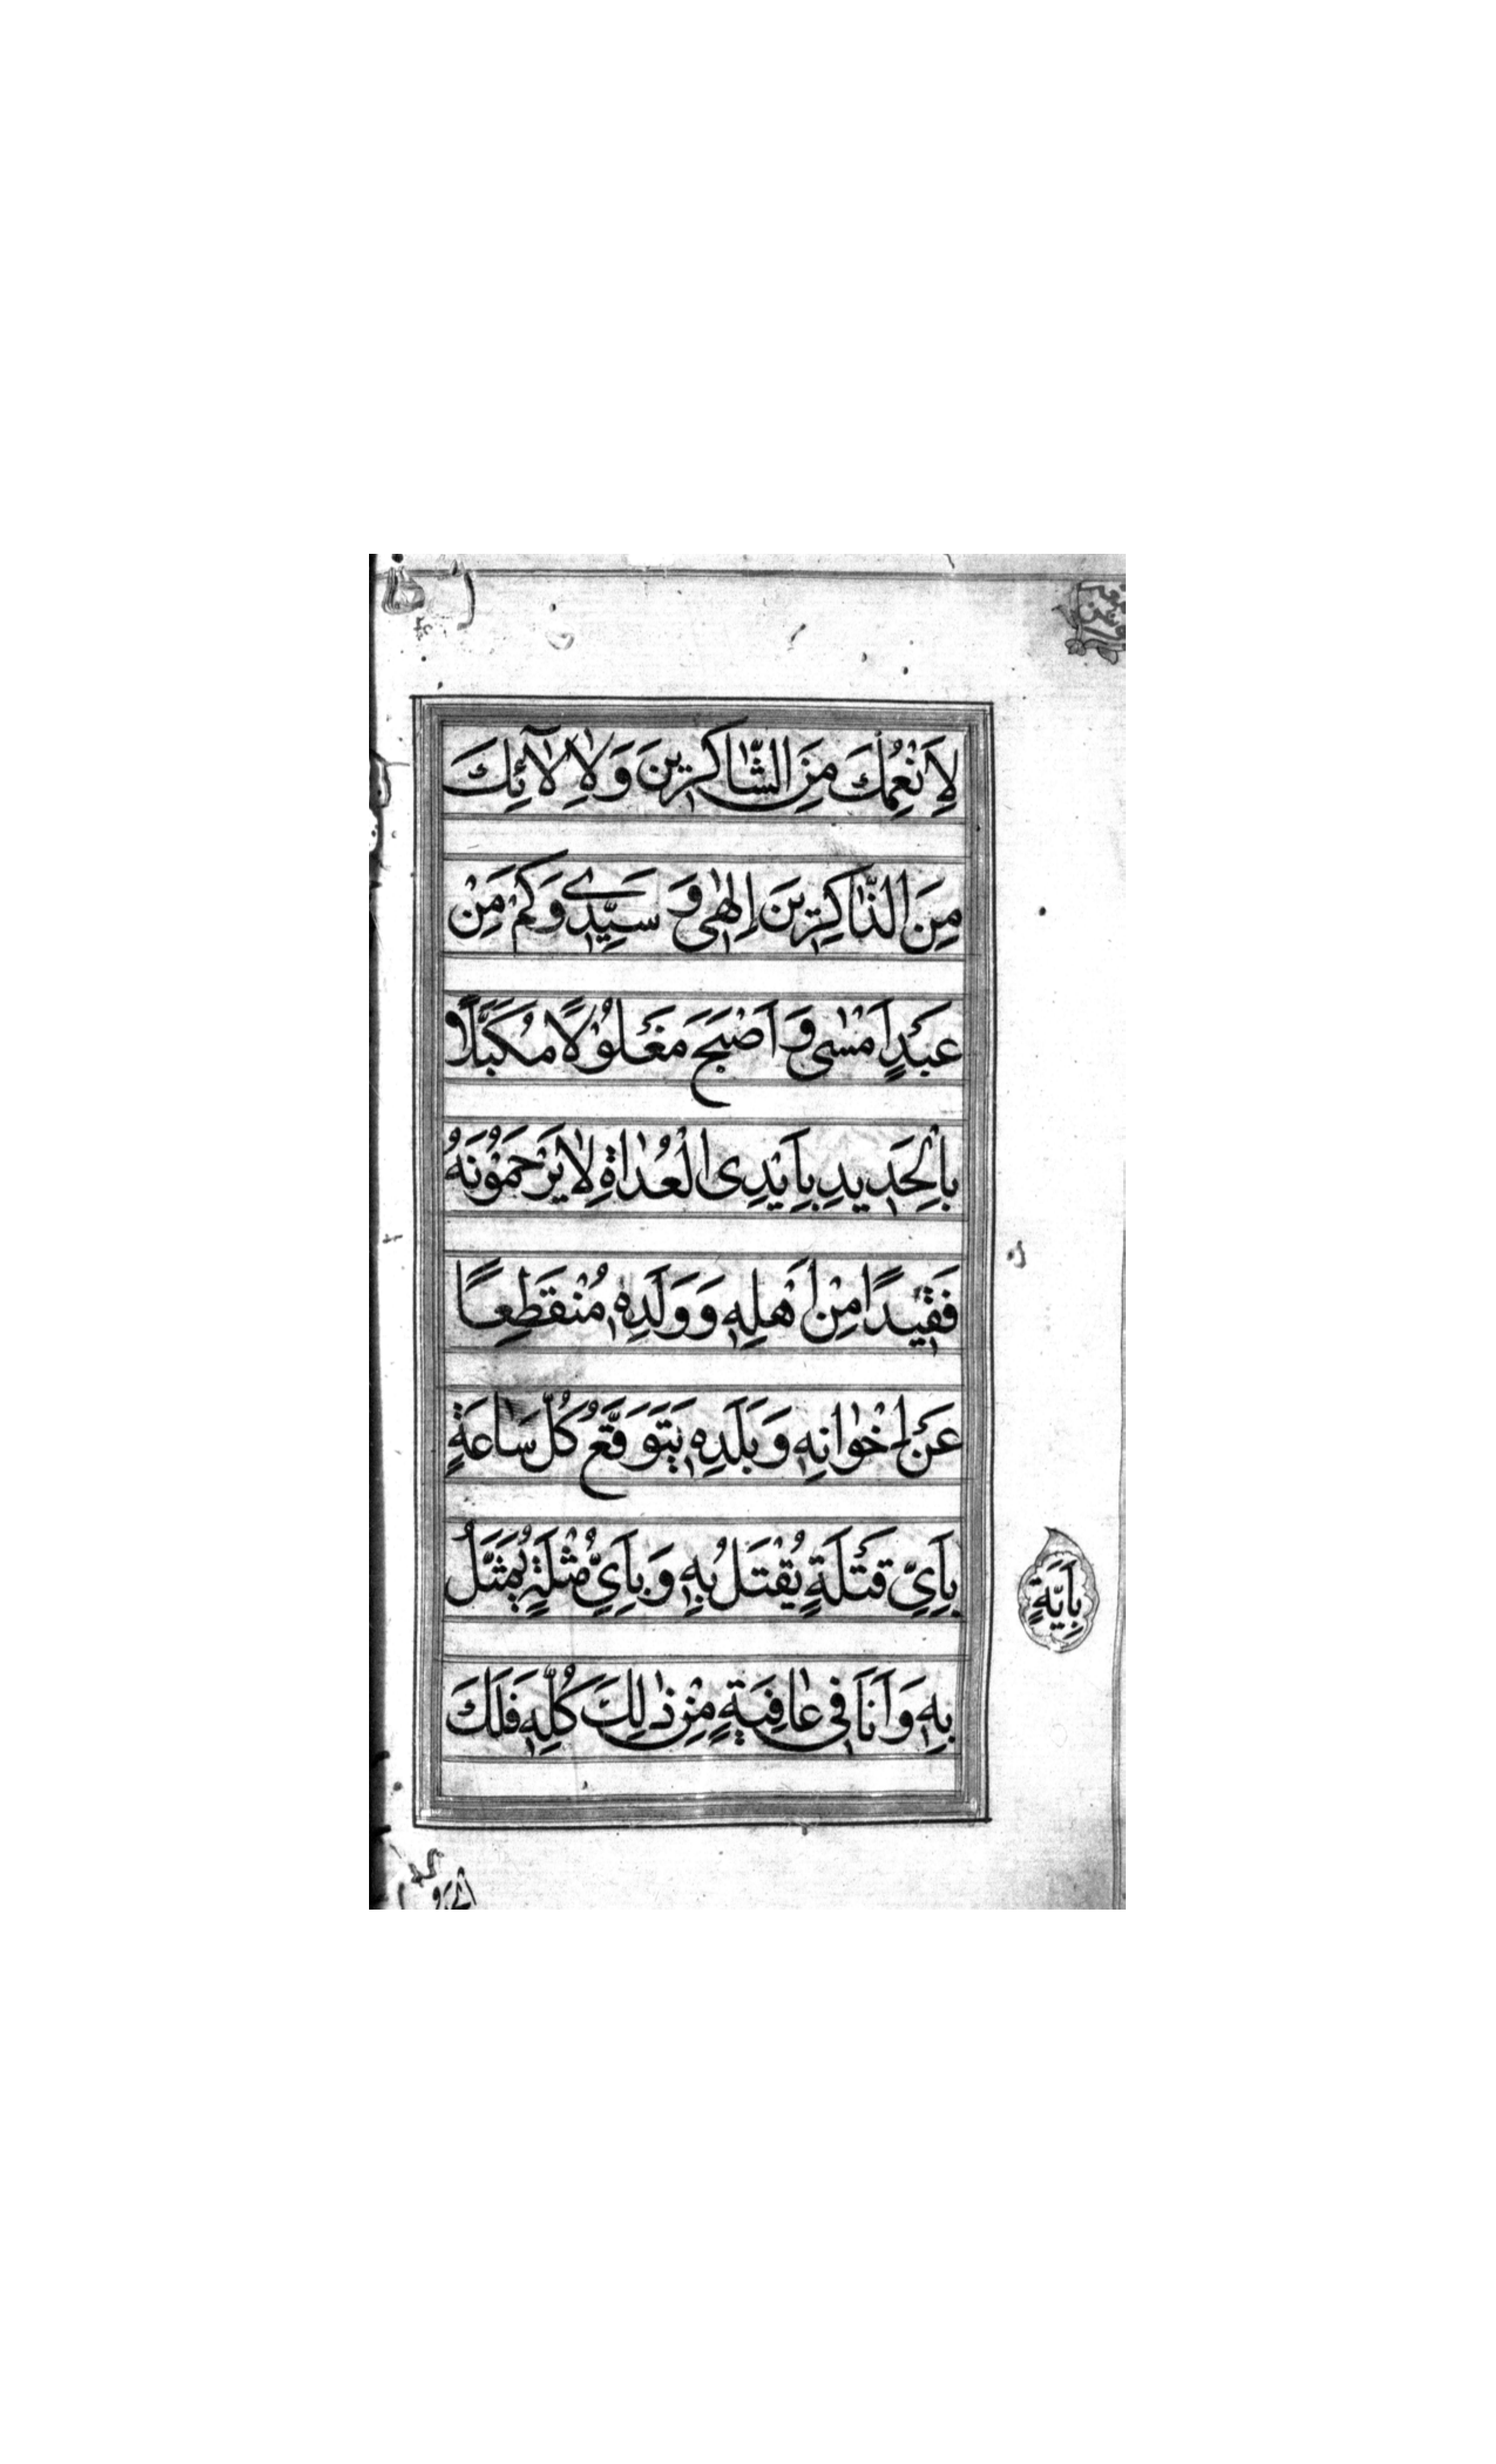 لِاَنْعُمِكَ مِنَ الشّاكِرينَ وَلِاٰلآئِكَ
مِنَ الذّاكِرينَ اِلهٰى وَسَيِّدى وَكَمْ مِنْ
عَبْدٍ اَمْسٰى وَ اَصْبَحَ مَغْلُوْلًا مُكَبَّلًا
بِالْحَديدِ بِاَيْدِى الْعُداةِ لايَرْحَمُوْنَهُ
فَقيْدًا مِنْ اَهْلِهِ وَوَلَدِهِ مُنْقَطِعًا
عَنْ اِخْوانِهِ وَبَلَدِهِ يَتَوَقَّعُ كُلَّ سَاعَةٍ
بِاَىِّ قَتْلَةٍ يُقْتَلُ بِهِ وَبِاَىِّ مُثْلَةٍ يُمَثَّلُ
بِاَيَّةٍ
بِهِ وَاَنَا فى عافِيَةٍ مِنْ ذٰلِكَ كُلِّهِ فَلَكَ